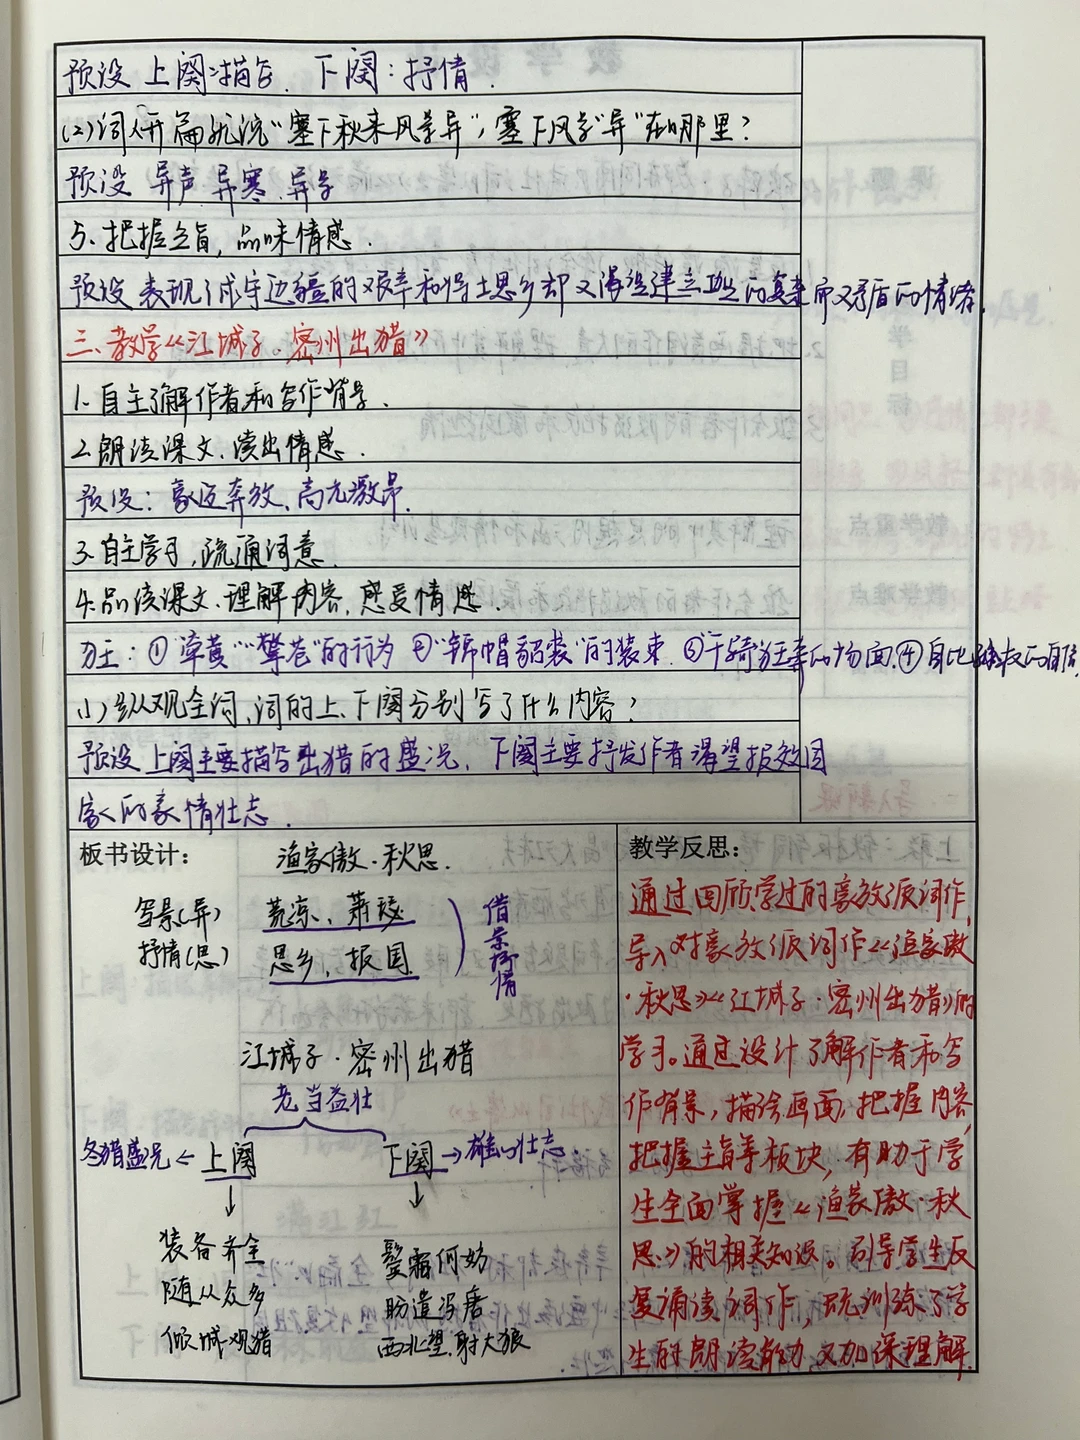 预设 上阕:描写. 下阕:抒情.
(2)词人开篇就说“塞下秋来风景异”,塞下风景“异”在哪里?
预设 异声 异寒 异景
5.把握主旨,品味情感.
预设 表现了戍守边疆的艰辛和将士思乡却又渴望建立功业的复杂而又矛盾的情绪.
三.教学《江城子·密州出猎》
1.自主了解作者和写作背景.
2.朗读课文.读出情感.
预设:豪迈奔放,高亢激昂.
3.自主学习,疏通词意.
4.品读课文.理解内容,感受情感.
狂:①“牵黄”“擎苍”的行为 ②“锦帽貂裘”的装束 ③千骑狂奔的场面.④自比孙权的自信
(1)纵观全词,词的上、下阕分别写了什么内容?
预设 上阕主要描写出猎的盛况, 下阕主要抒发作者渴望报效国
家的豪情壮志.
板书设计:
渔家傲·秋思.
写景(异) 荒凉、萧瑟
抒情(思) 思乡、报国
借景抒情
江城子·密州出猎
老当益壮
冬猎盛况 ← 上阕 下阕 → 雄心壮志
↓ ↓
装备齐全 鬓霜何妨
随从众多 盼遣冯唐
倾城观猎 西北望.射大狼
教学反思:
通过回顾学过的豪放派词作,
导入对豪放派词作《渔家傲
·秋思》《江城子·密州出猎》的
学习。通过设计了解作者和写
作背景,描绘画面,把握内容,
把握主旨等板块,有助于学
生全面掌握《渔家傲·秋
思》的相关知识。引导学生反
复诵读词作,既训练了学
生的朗读能力,又加深理解.